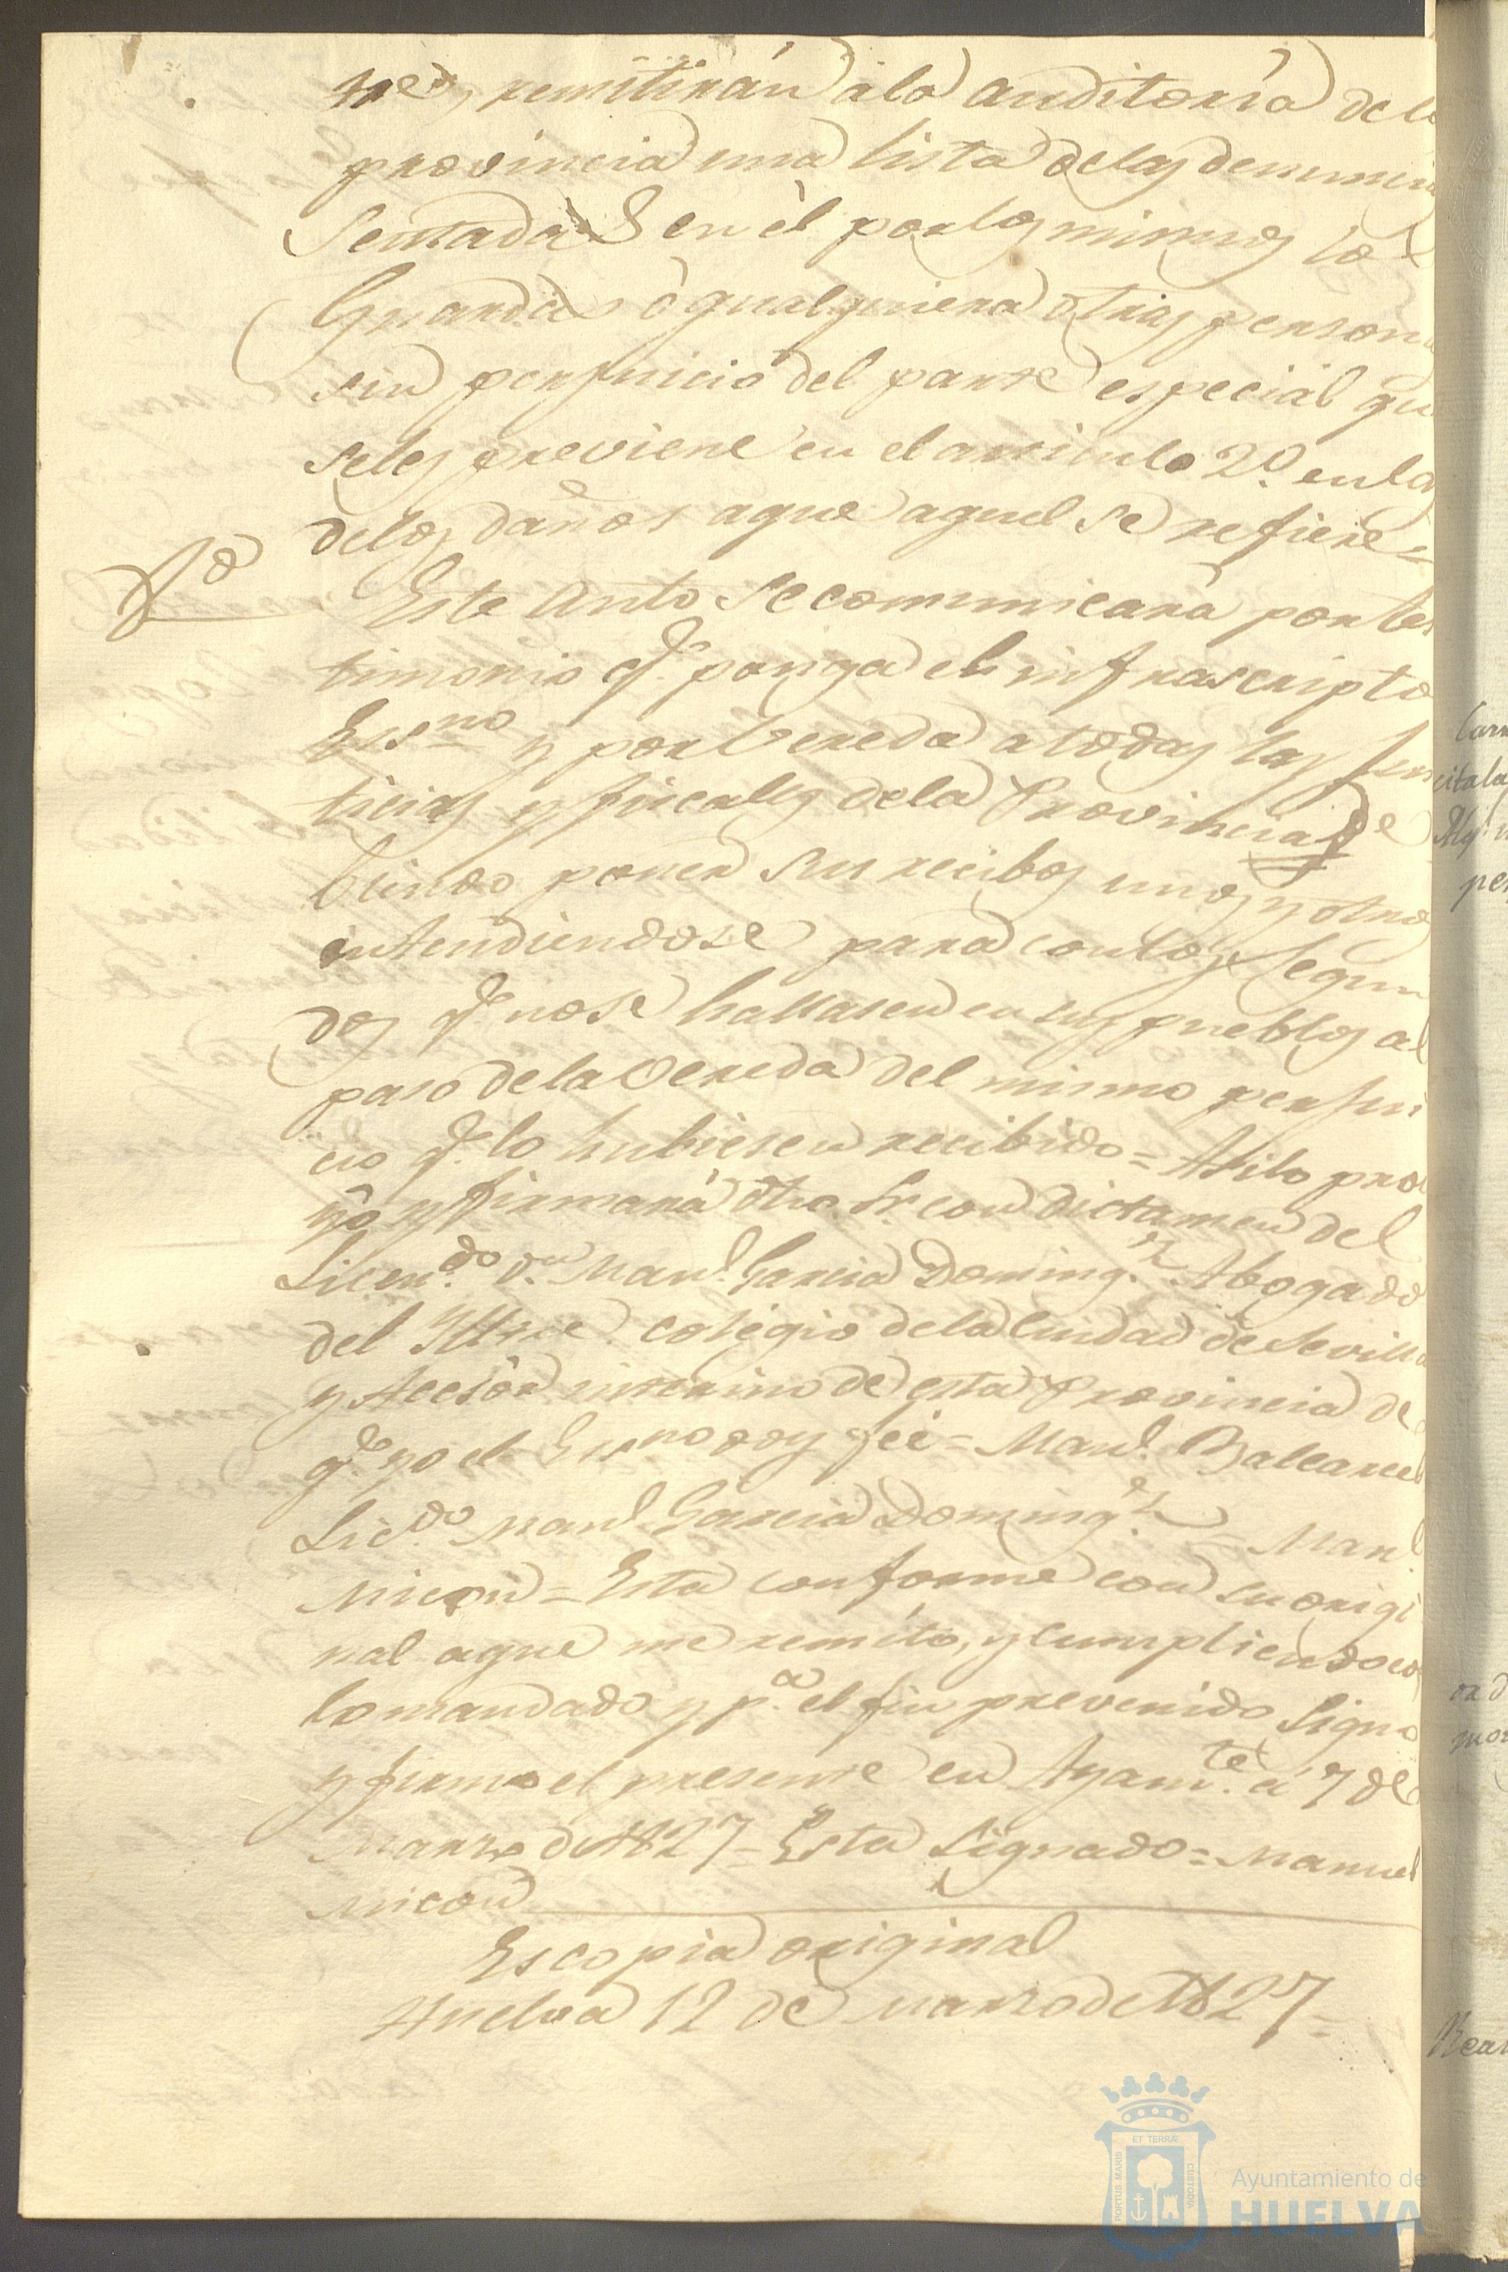 nes, remitirán á la Auditoría de la
provincia una lista de las denuncia
Sentadas en él por los mismos, los
Guardas ó qualquiera otras persona
sin perjuicio del parte especial que
se les previene en el articulo 2º. en la
de los daños a que aquel se refiere =
Este Auto se comunicará por tes
timonio q.e ponga el infrascripto
Essno y por Vereda a todas las Jus
ticias y fiscales de la Provincia, de
biendo poner su recibos unos y otros
entendiendose para con los segun
dos q.e no se hallasen en sus pueblos al
paso de la Vereda del mismo perjui
cio q.e lo hubiesen recibido = Asi lo pro
veyó y firmará dho. Sr. con dictamen del
Licen.do D.n Man.l Garcia Doming.z Abogado
del Iltre. colegio de la Ciudad de Sevilla
y Acesor interino de esta Provincia de
q.e yo el Essno doy feé = Man.l Balcarcel
Lic.do Man.l Garcia Doming.z = Man.l
Micon = Esta conforme con su origi
nal a que me remito, y cumpliendo con
lo mandado y p.a el fin prevenido Signo
y firmo el presente en Ayam.te á 7 de
Marzo de 1827 = Esta signado = Manuel
Micon
Es copia original
Huelva 12 de Marzo de 1827 =
Ayuntamiento de
HUELVA
PORTUS MARIS
ET TERRÆ
CUSTODIA